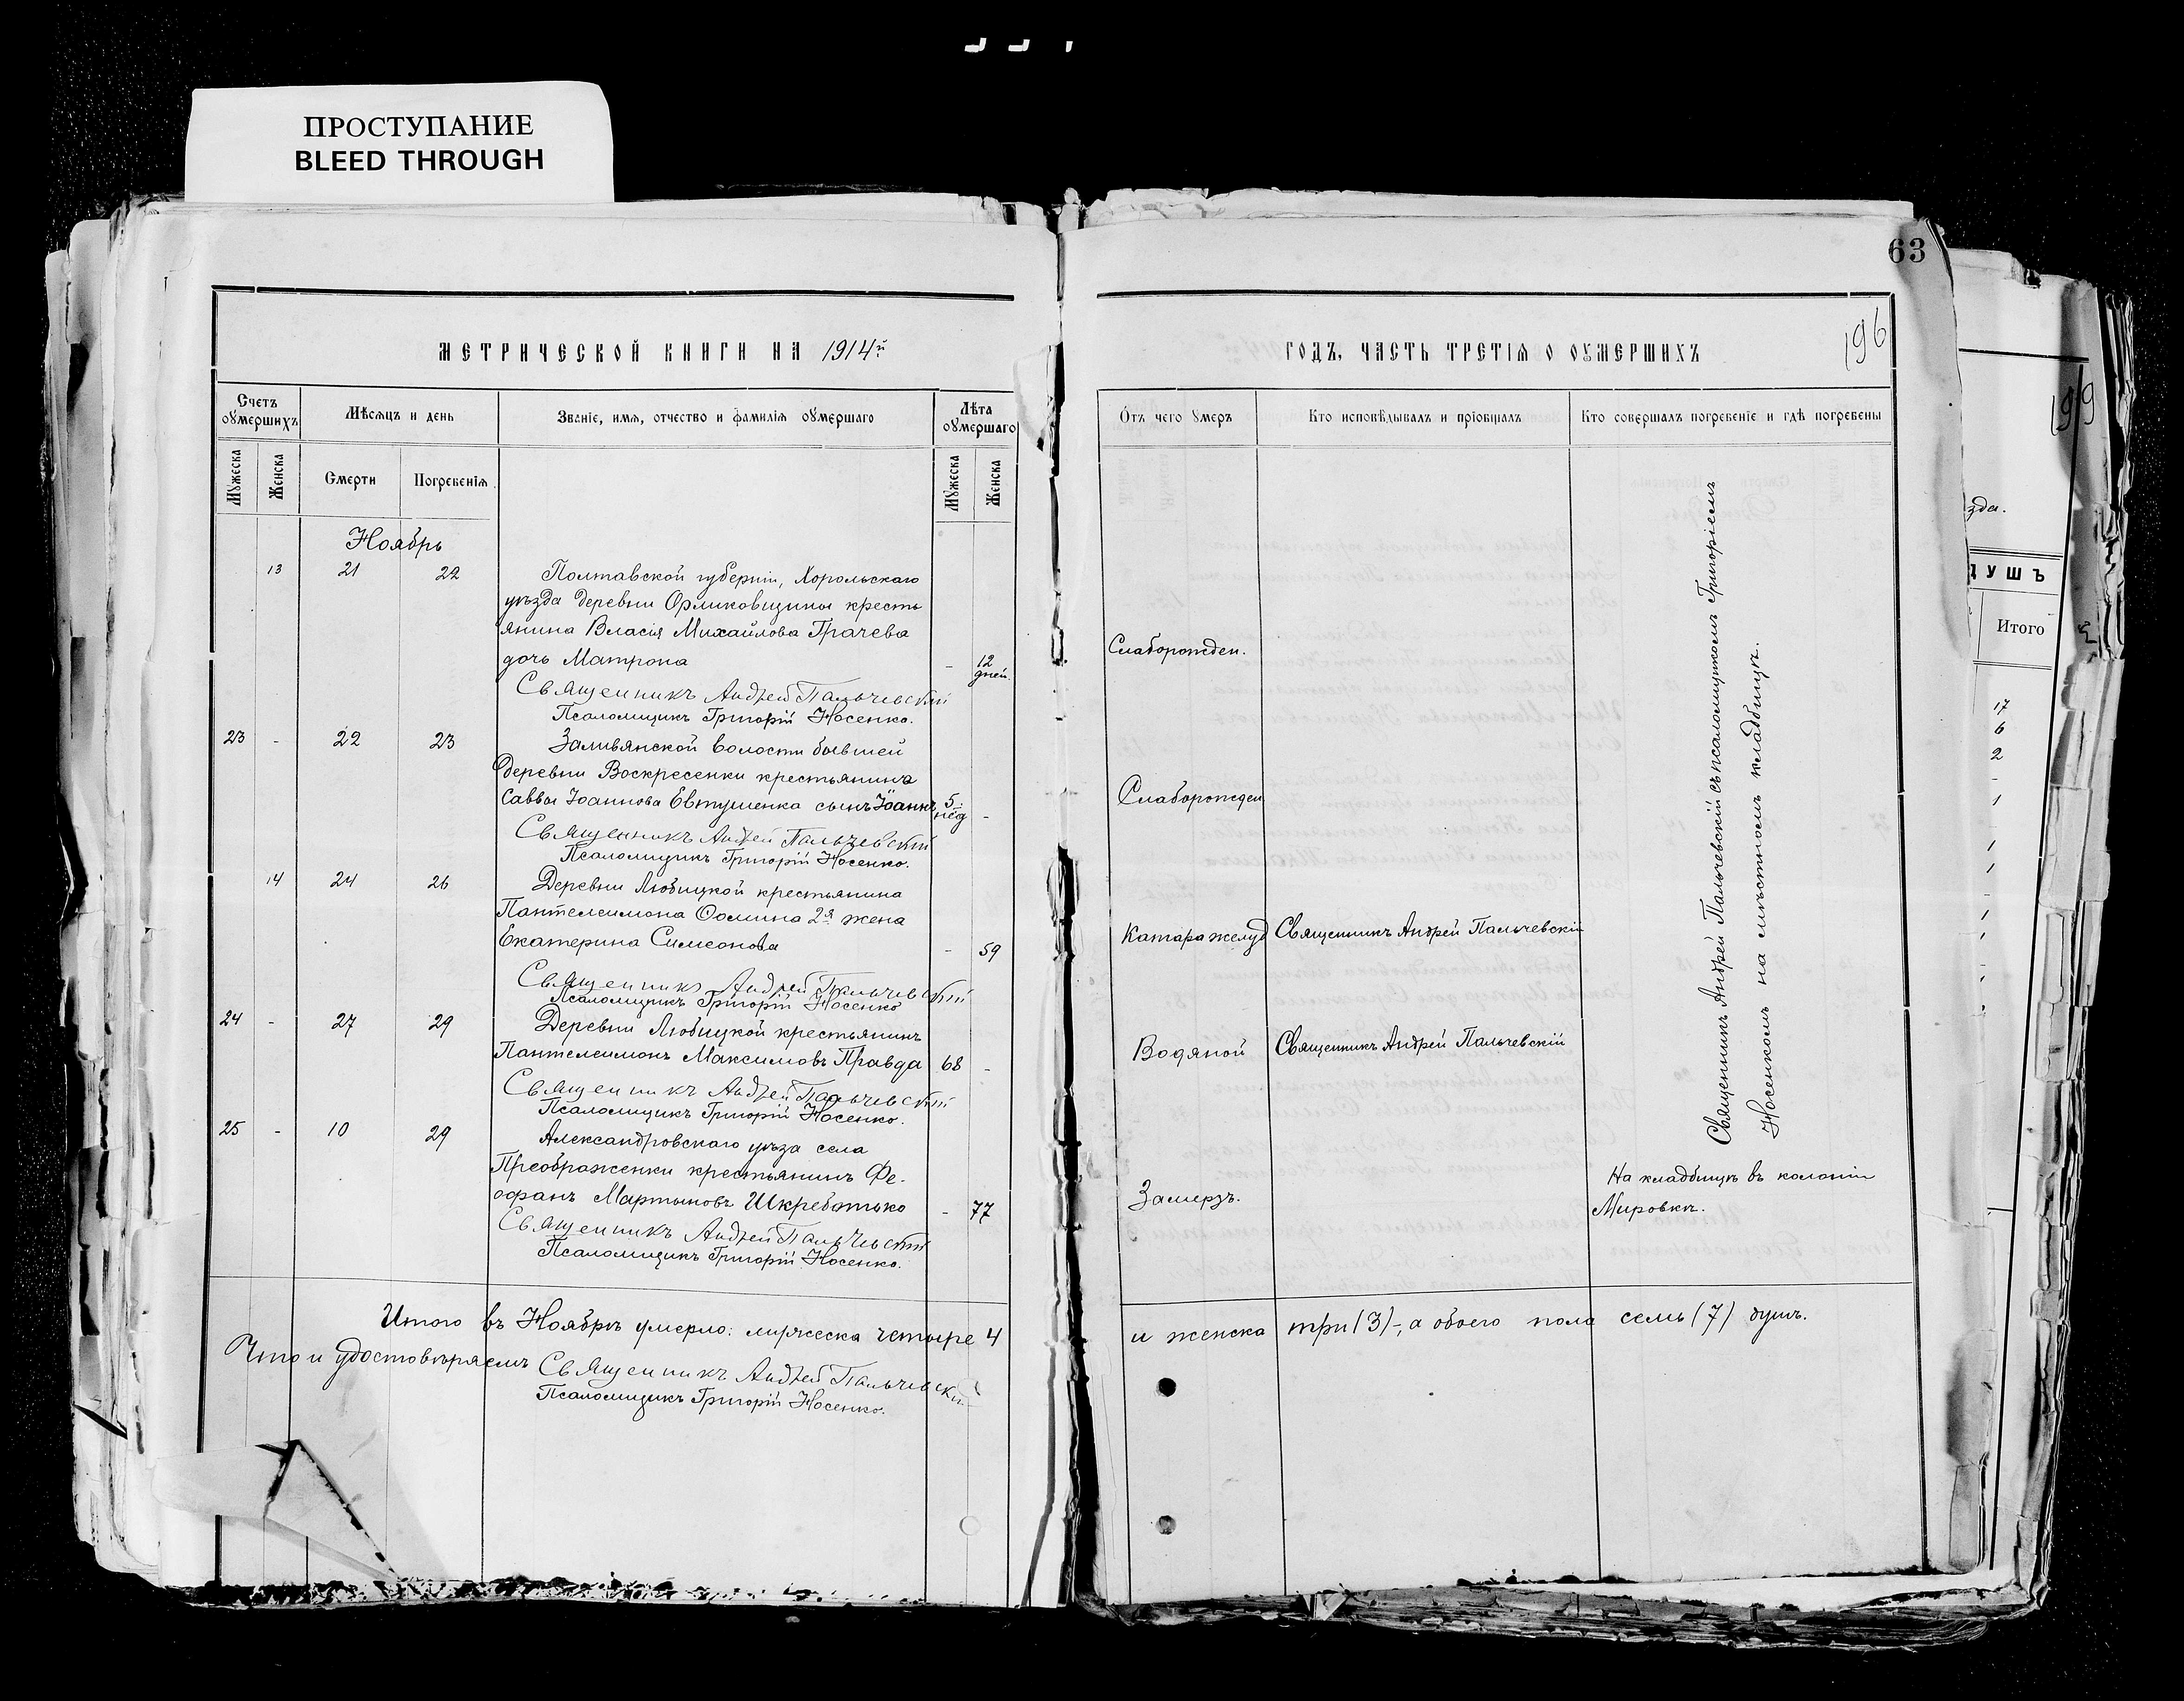 ПРОСТУПАНИЕ
BLEED THROUGH
63
196
МЕТРИЧЕСКОЙ КНИГИ НА 1914й
ГОДЪ, ЧАСТЬ ТРЕТІѦ О ОУМЕРШИХЪ
Счетъ оумершихъ
Мѣсѧцъ и день
Званіе, имѧ, отчество и фамилїѧ оумершаго
Лѣта оумершаго
Мужеска
Женска
Смерти
Погребенїѧ
Мужеска
Женска
Отъ чего умеръ
Кто исповѣдывалъ и прїобщалъ
Кто совершалъ погребенїе и гдѣ погребены
Ноябрь
13 21 22 Полтавской губерніи, Хорольскаго
уѣзда деревни Орликовщины кресть
янина Власія Михайлова Грачева
дочь Матрона - 12 дней. Слаборожден.
Священникъ Андрей Пальчевскій
Псаломщикъ Григорій Носенко.
23 - 22 23 Заливянской волости бывшей
деревни Воскресенки крестьянина
Саввы Іоаннова Евтушенка сынъ Іоаннъ 5 нед - Слаборожден
Священникъ Андрей Пальчевскій
Псаломщикъ Григорій Носенко.
14 24 26 Деревни Любицкой крестьянина
Пантелеимона Ѳомина 2я жена
Екатерина Симеонова - 59 Катара желуд Священникъ Андрей Пальчевскій
Священникъ Андрей Пальчевскій
Псаломщикъ Григорій Носенко
24 - 27 29 Деревни Любицкой крестьянинъ
Пантелеимонъ Максимовъ Правда 68 - Водяной Священникъ Андрей Пальчевскій
Священникъ Андрей Пальчевскій
Псаломщикъ Григорій Носенко.
25 - 10 29 Александровскаго уѣза села
Преображенки крестьянинъ Фе-
офанъ Мартыновъ Шкребтько - 77 Замерзъ.
Священникъ Андрей Пальчевскій
Псаломщикъ Григорій Носенко.
Священникъ Андрей Пальчевскій съ псаломщикомъ Григоріемъ
Носенкомъ на мѣстномъ кладбищѣ.
На кладбищѣ въ колоніи
Мировкѣ.
Итого въ Ноябрѣ умерло: мужеска четыре 4 и женска три (3)-, а обоего пола семь (7) душъ.
Что и удостовѣряемъ Священникъ Андрей Пальчевскій
Псаломщикъ Григорій Носенко.
199
зда.
ДУШЪ
Итого
17
6
2
-
1
1
1
-
1
1
-
1